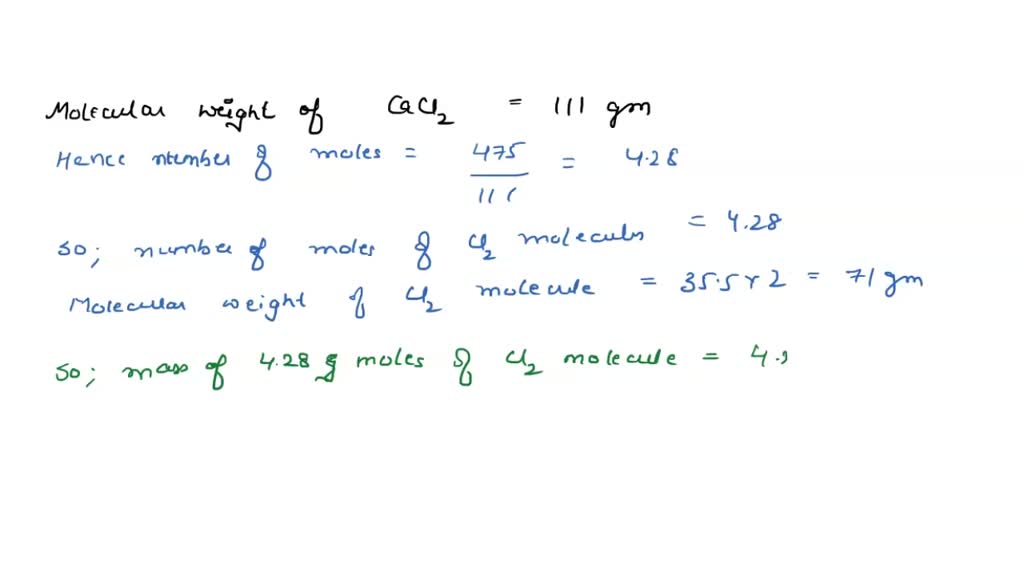 Molecular weight of CaCl2 = 111 gm
Hence number of moles = 475 / 111 = 4.28
So; number of moles of Cl2 molecules = 4.28
Molecular weight of Cl2 molecule = 35.5 × 2 = 71 gm
So; mass of 4.28 g moles of Cl2 molecule = 4.